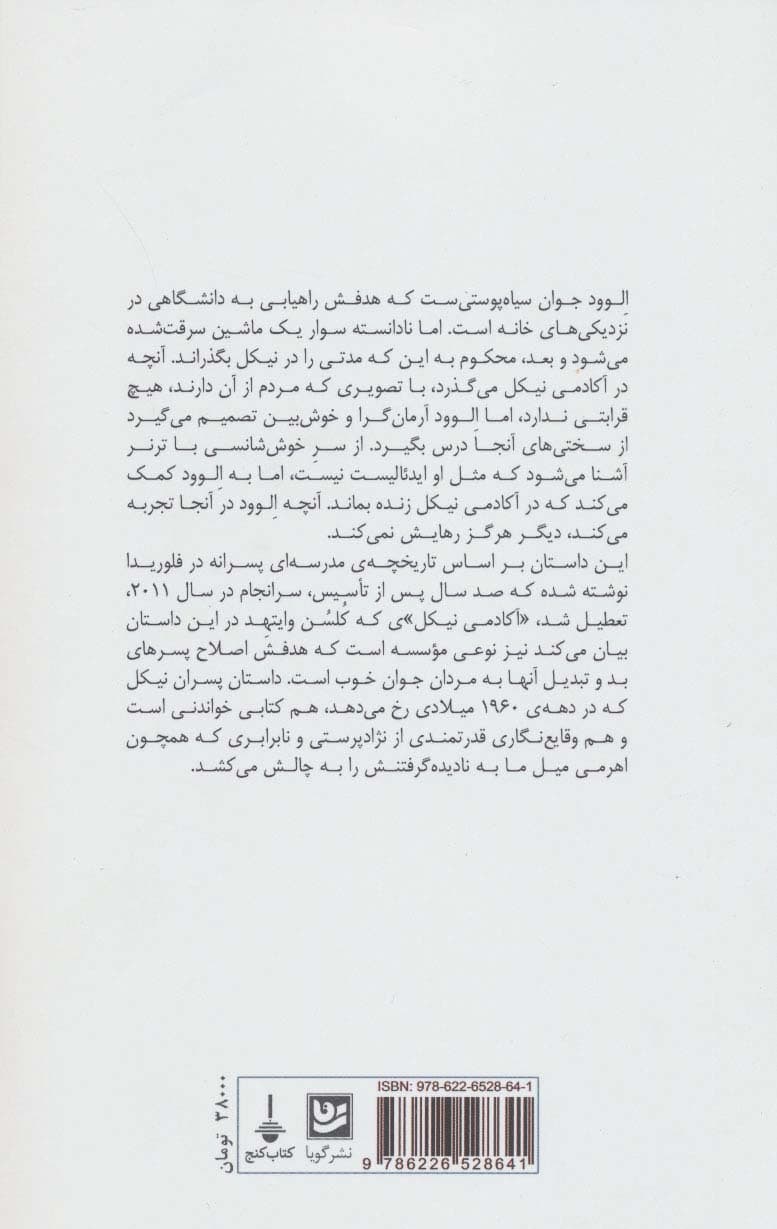 اِلـوود جـوان سیاه‌پوستی‌ست کـه هـدفـش راهیـابـی بـه دانـشـگـاهی در
نزدیکی‌های خانه است. اما نادانسته سوار یـک مـاشین سرقت‌شده
می‌شود و بعد، محکوم به این که مدتی را در نیکل بگذراند. آنچه
در آکادمی نیکل می‌گـذرد، بـا تصویـری کـه مـردم از آن دارنـد، هیـچ
قرابتی نـدارد، امـا اِلوود آرمان‌گـرا و خـوش‌بین تصمیـم می‌گیـرد
از سختی‌های آنجـا درس بگیـرد. از سـرِ خوش‌شانسـی بـا ترنـر
آشنا می‌شود که مثل او ایدئالیست نیست، اما به اِلوود کمک
می‌کند که در آکادمی نیکل زنده بماند. آنچه اِلـوود در آنجا تجربه
می‌کند، دیگر هرگز رهایش نمی‌کند.
ایـن داستان بـر اسـاس تاریخچه‌ی مدرسه‌ای پسرانه در فلوریـدا
نوشته شده که صد سال پس از تأسیس، سرانجام در سال ۲۰۱۱،
تعطیل شـد، «آکادمـی نیکل»ی کـه کُلسُـن وایتهِـد در ایـن داستان
بیـان می‌کنـد نیـز نوعـی مؤسسه اسـت کـه هدفـش اصلاح پسرهای
بد و تبدیل آنها به مردان جوان خوب است. داستان پسران نیکل
که در دهه‌ی ۱۹۶۰ میلادی رخ می‌دهد، هـم کتابـی خواندنـی اسـت
و هـم وقایع‌نگاری قدرتمندی از نژادپرستی و نابرابری که همچون
اهرمی میل ما به نادیده‌گرفتنش را به چالش می‌کشد.
ISBN: 978-622-6528-64-1
9 786226 528641
نشر گویا
کتاب کنج
۳۸۰۰۰ تومان